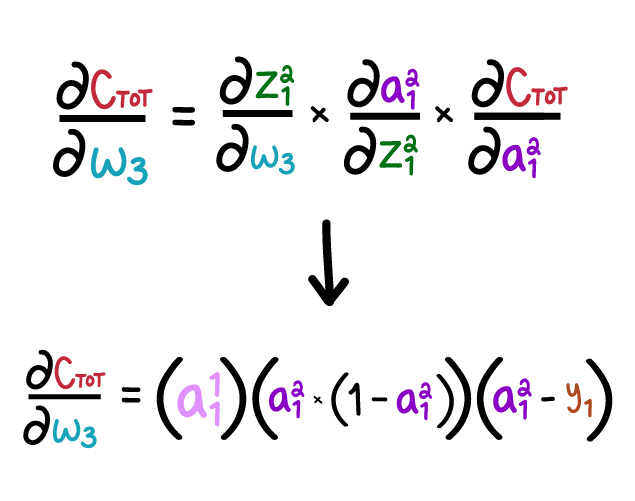 ∂C_TOT/∂w_3 = ∂z_1^2/∂w_3 × ∂a_1^2/∂z_1^2 × ∂C_TOT/∂a_1^2
↓
∂C_TOT/∂w_3 = (a_1^1)(a_1^2 × (1 − a_1^2))(a_1^2 − y_1)